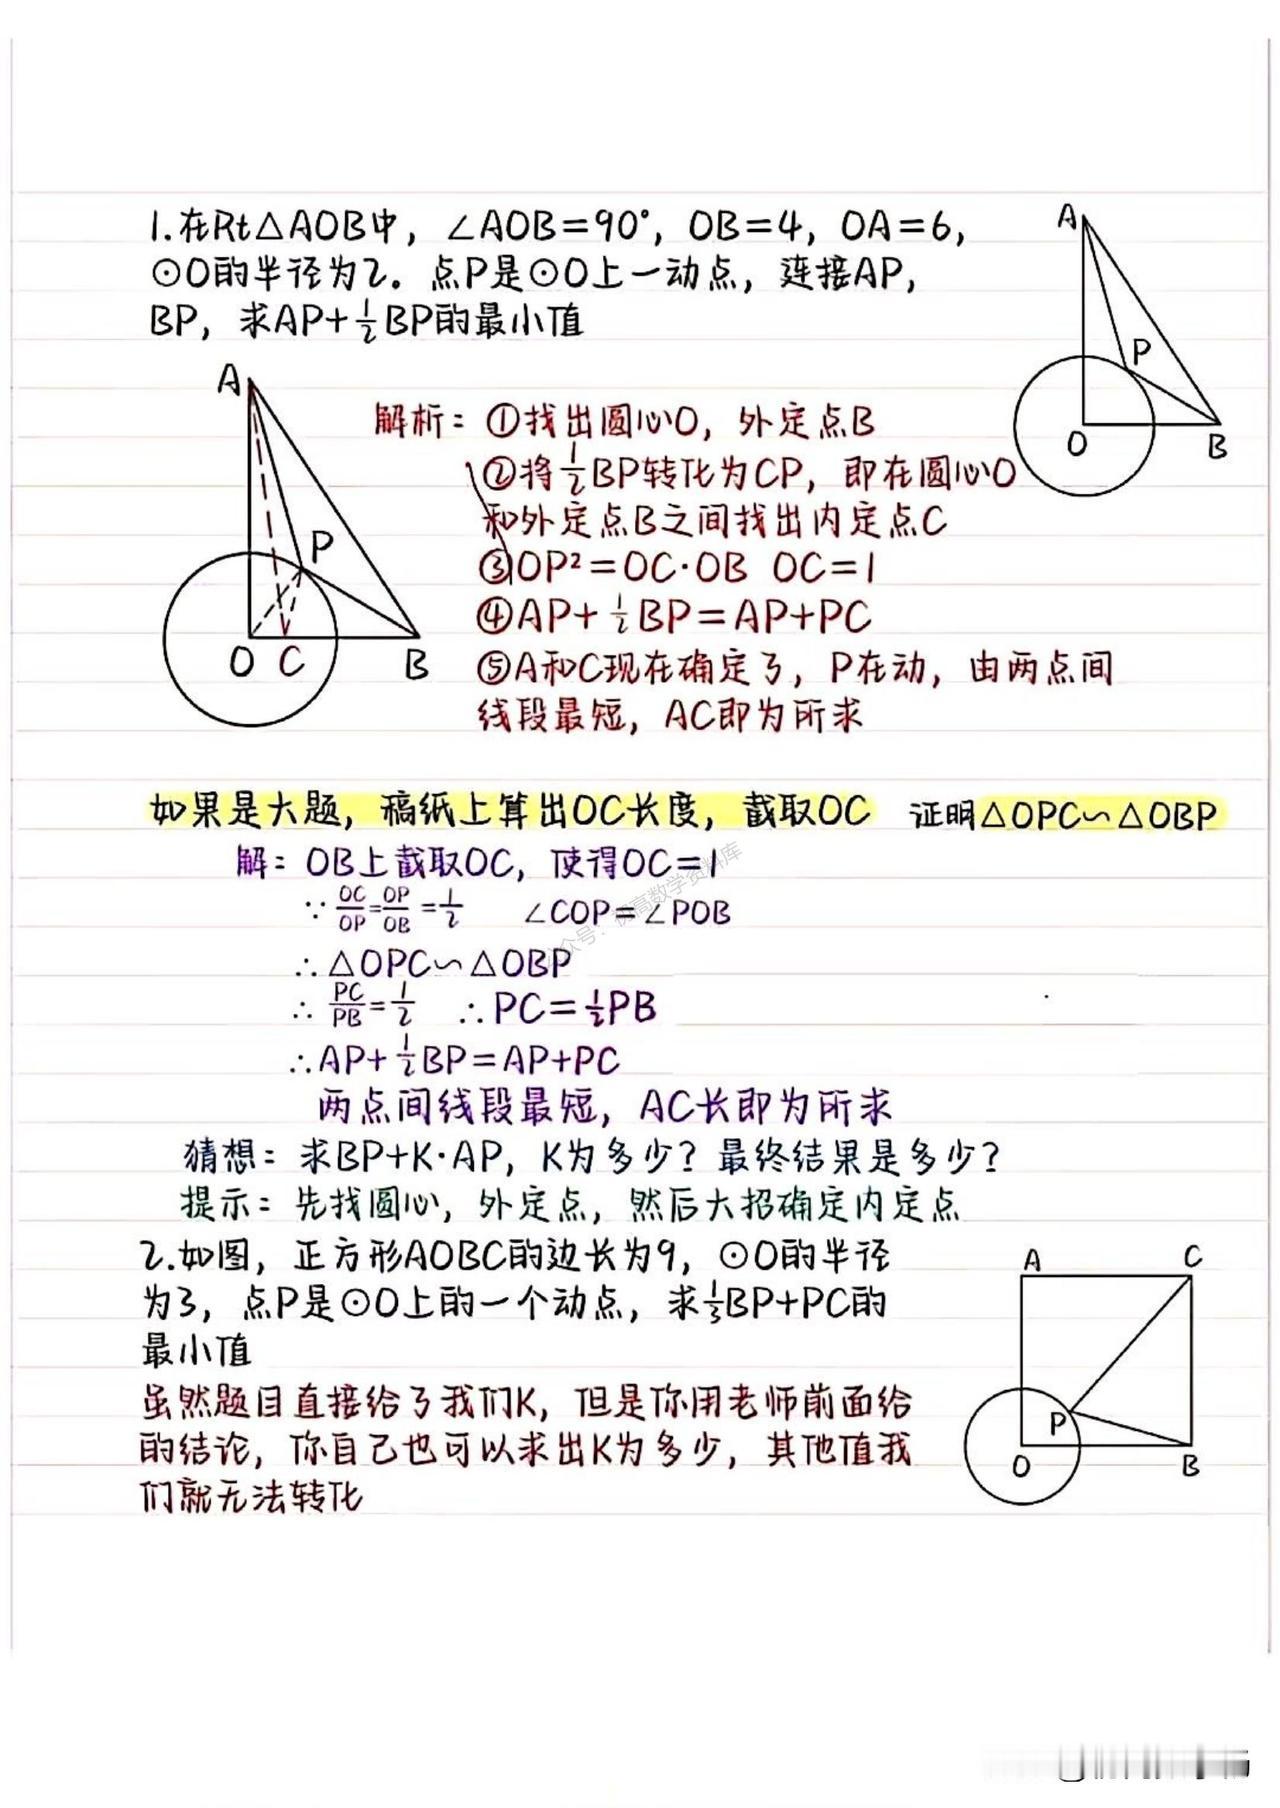 1.在Rt△AOB中，∠AOB=90°，OB=4，OA=6，
⊙O的半径为2。点P是⊙O上一动点，连接AP，
BP，求AP+½BP的最小值
A
P
O
B
A
P
O
C
B
解析：①找出圆心O，外定点B
②将½BP转化为CP，即在圆心O
和外定点B之间找出内定点C
③OP²=OC·OB OC=1
④AP+½BP=AP+PC
⑤A和C现在确定了，P在动，由两点间
线段最短，AC即为所求
如果是大题，稿纸上算出OC长度，截取OC 证明△OPC∽△OBP
解：OB上截取OC，使得OC=1
∵ OC/OP=OP/OB=1/2 ∠COP=∠POB
∴△OPC∽△OBP
∴ PC/PB=1/2 ∴PC=½PB
∴AP+½BP=AP+PC
两点间线段最短，AC长即为所求
猜想：求BP+K·AP，K为多少？最终结果是多少？
提示：先找圆心，外定点，然后大招确定内定点
2.如图，正方形AOBC的边长为9，⊙O的半径
为3，点P是⊙O上的一个动点，求⅓BP+PC的
最小值
虽然题目直接给了我们K，但是你用老师前面给
的结论，你自己也可以求出K为多少，其他值我
们就无法转化
A
C
P
O
B